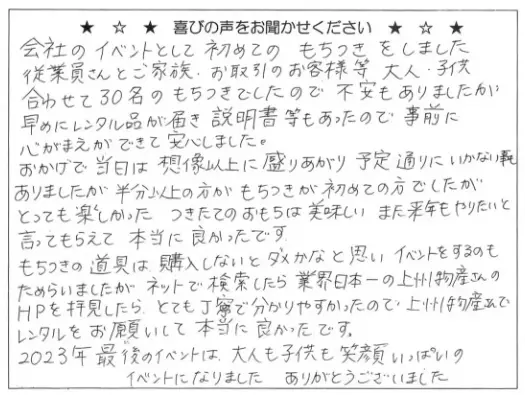 ★ ☆ ★ 喜びの声をお聞かせください ★ ☆ ★
会社の イベントとして 初めての もちつき をしました
従業員さんとご家族、お取引のお客様等 大人・子供
合わせて 30名の もちつきでしたので 不安もありましたが
早めにレンタル品が届き 説明書等もあったので 事前に
心がまえができて安心しました。
おかげで当日は 想像以上に盛りあがり 予定通りにいかない事も
ありましたが 半分以上の方が もちつきが初めての方でしたが
とっても楽しかった つきたてのおもちは美味しい また来年もやりたいと
言ってもらえて 本当に良かったです
もちつきの道具は 購入しないとダメかなと思い イベントをするのも
ためらいましたが ネットで検索したら 業界日本一の上州物産さんの
HPを拝見したら、とても丁寧で分かりやすかったので、上州物産さんで
レンタルをお願いして 本当に良かったです。
2023年最後のイベントは、大人も子供も 笑顔いっぱいの
イベントになりました ありがとうございました